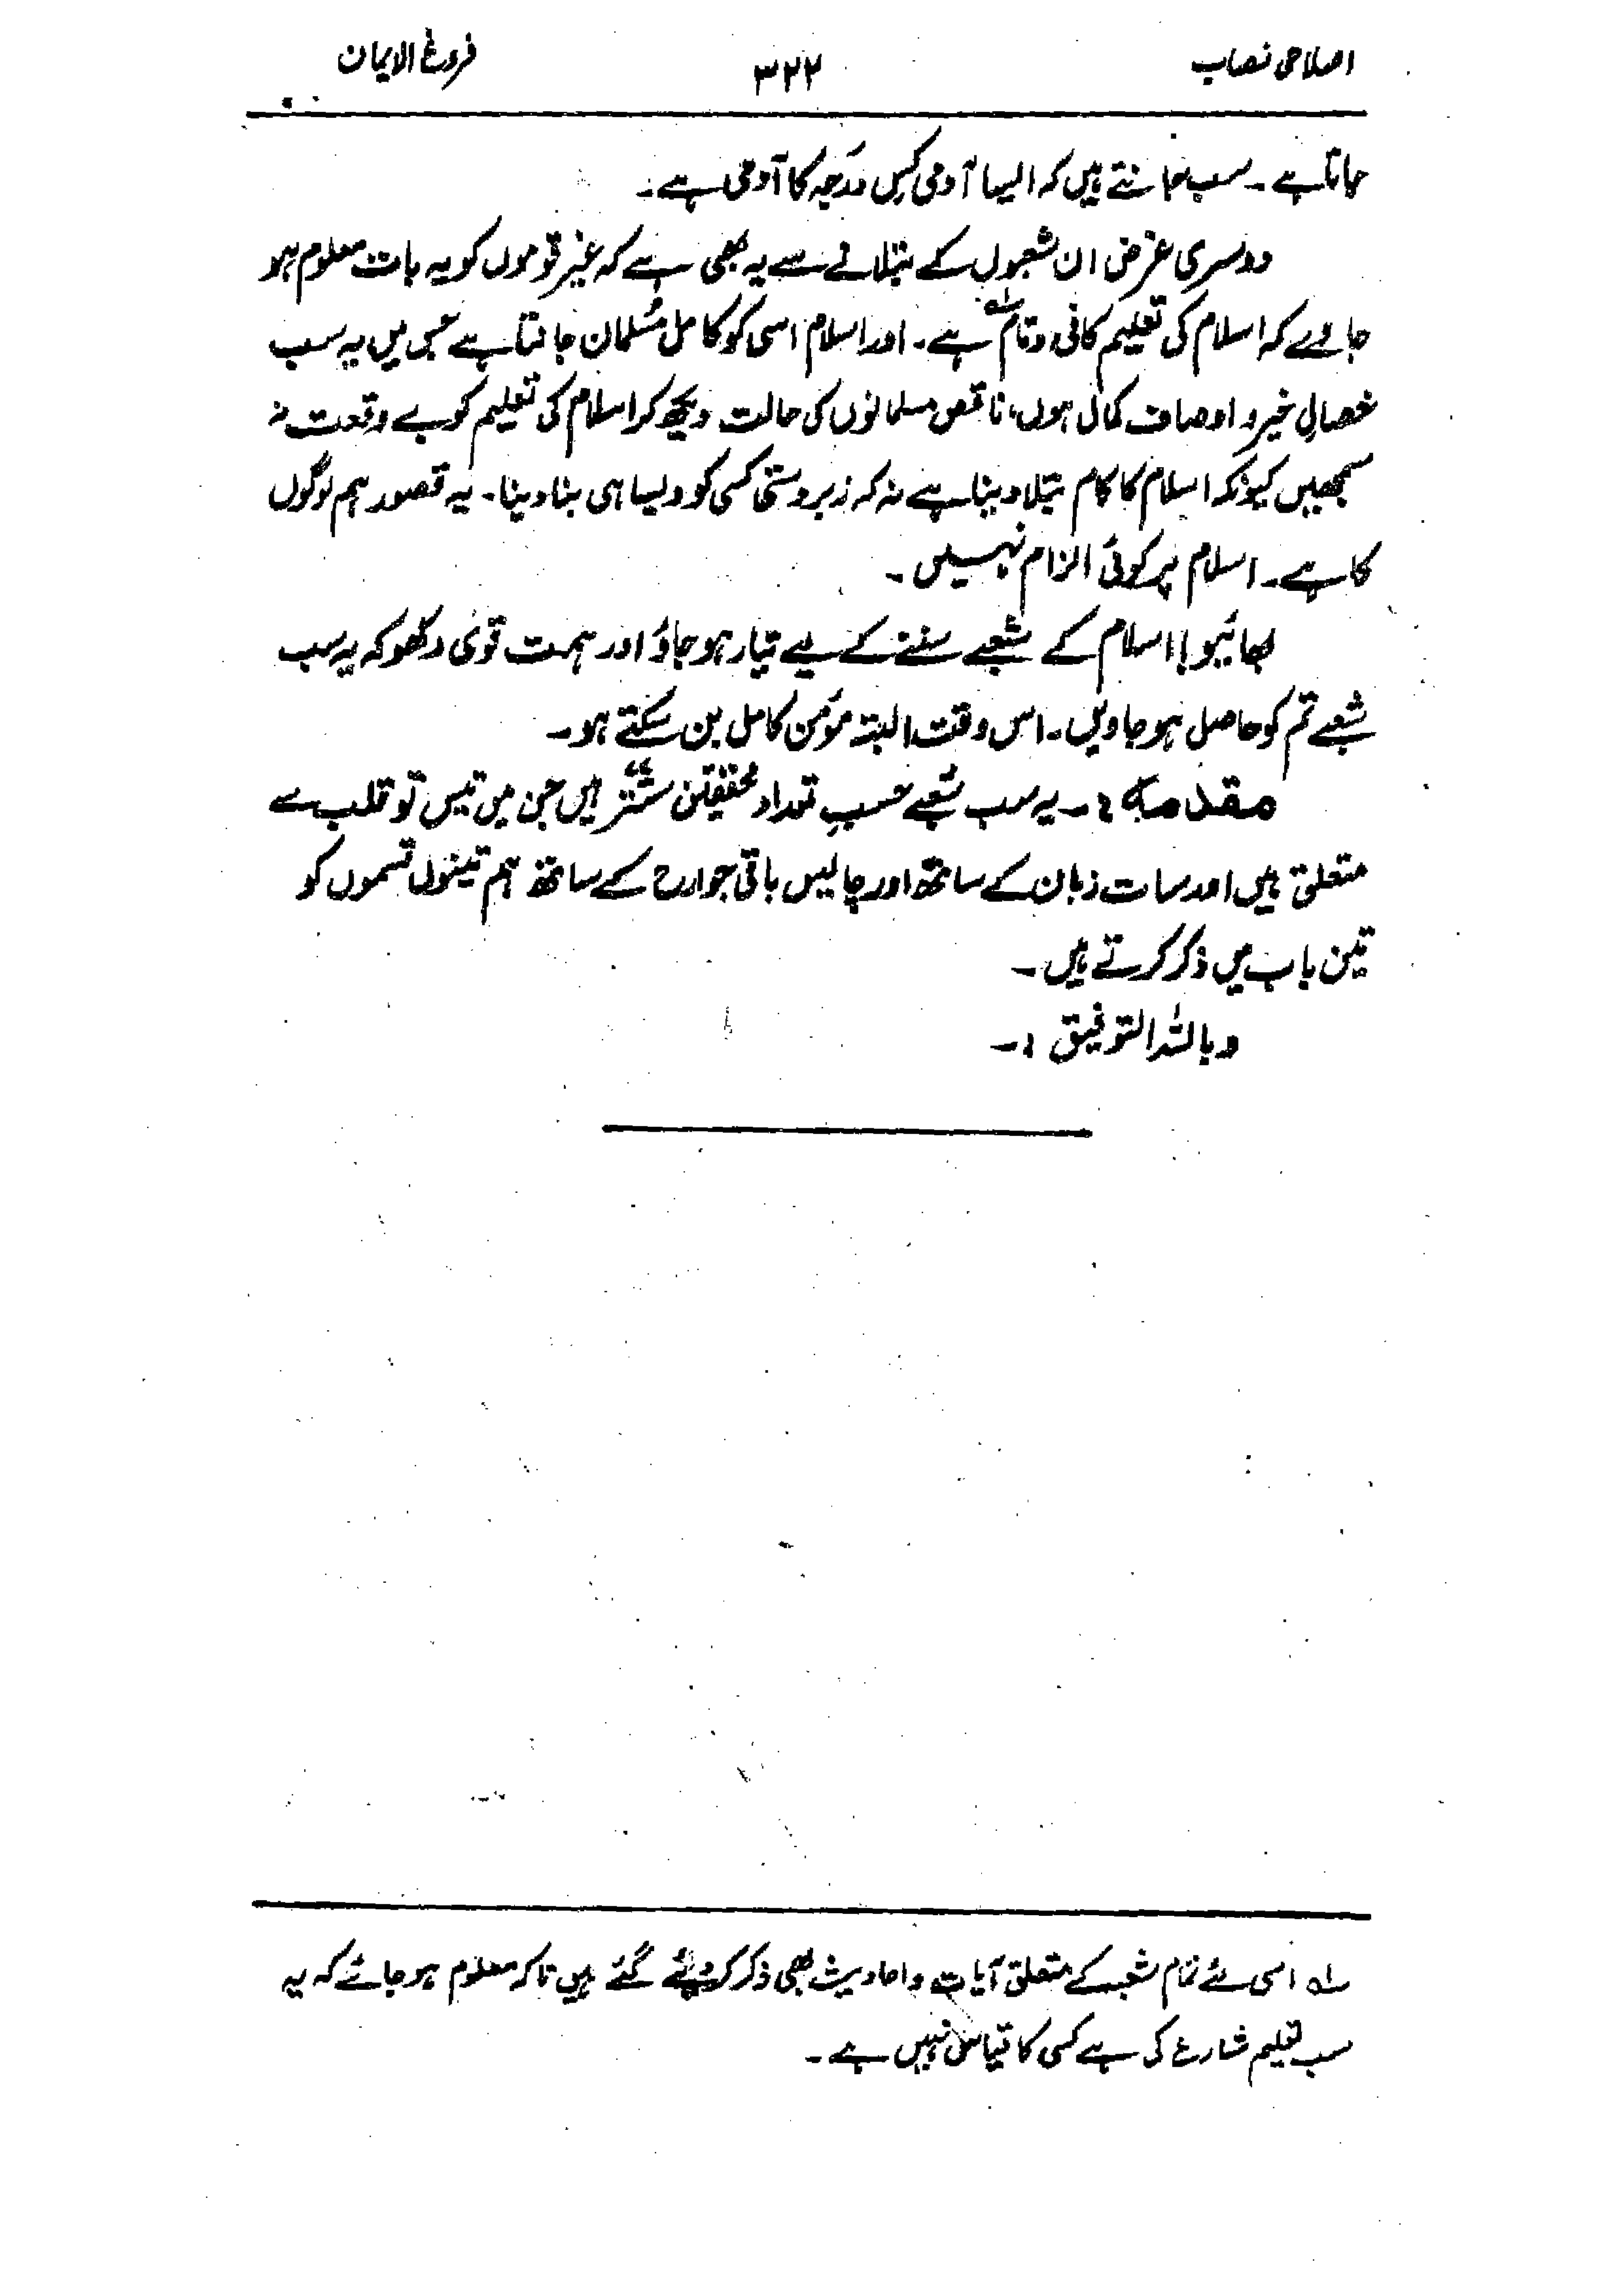 اصلاحی نصاب ۳۲۲ فروغ الایمان
جاتا ہے۔ سب جانتے ہیں کہ ایسا آدمی کس درجہ کا آدمی ہے۔
دوسری غرض ان شعبوں کے بتلانے سے یہ بھی ہے کہ غیر قوموں کو یہ بات معلوم ہو
جاوے کہ اسلام کی تعلیم کافی و تام ؎۱ ہے۔ اور اسلام اسی کو کامل مُسلمان جانتا ہے جس میں یہ سب
خصالِ خیر و اوصاف کمال ہوں، ناقص مسلمانوں کی حالت دیکھ کر اسلام کی تعلیم کو بے وقعت نہ
سمجھیں کیونکہ اسلام کا کام بتلا دینا ہے نہ کہ زبردستی کسی کو ویسا ہی بنا دینا۔ یہ قصور ہم لوگوں
کا ہے۔ اسلام پر کوئی الزام نہیں۔
بھائیو! اسلام کے شعبے سننے کے لیے تیار ہو جاؤ اور ہمت قوی رکھو کہ یہ سب
شعبے تم کو حاصل ہو جاویں۔ اس وقت البتہ مؤمن کامل بن سکتے ہو۔
مقدمہ :۔ یہ سب شعبے حسبِ تعداد محققین ستتر ۷۷ ہیں جن میں تیس تو قلب سے
متعلق ہیں اور سات زبان کے ساتھ اور چالیس باقی جوارح کے ساتھ ہم تینوں قسموں کو
تین باب میں ذکر کرتے ہیں۔
وباللہ التوفیق :۔
؎۱ اسی لئے تمام شعبہ کے متعلق آیات و احادیث بھی ذکر کر دئیے گئے ہیں تاکہ معلوم ہو جائے کہ یہ
سب تعلیم شارع کی ہے کسی کا قیاس نہیں ہے۔